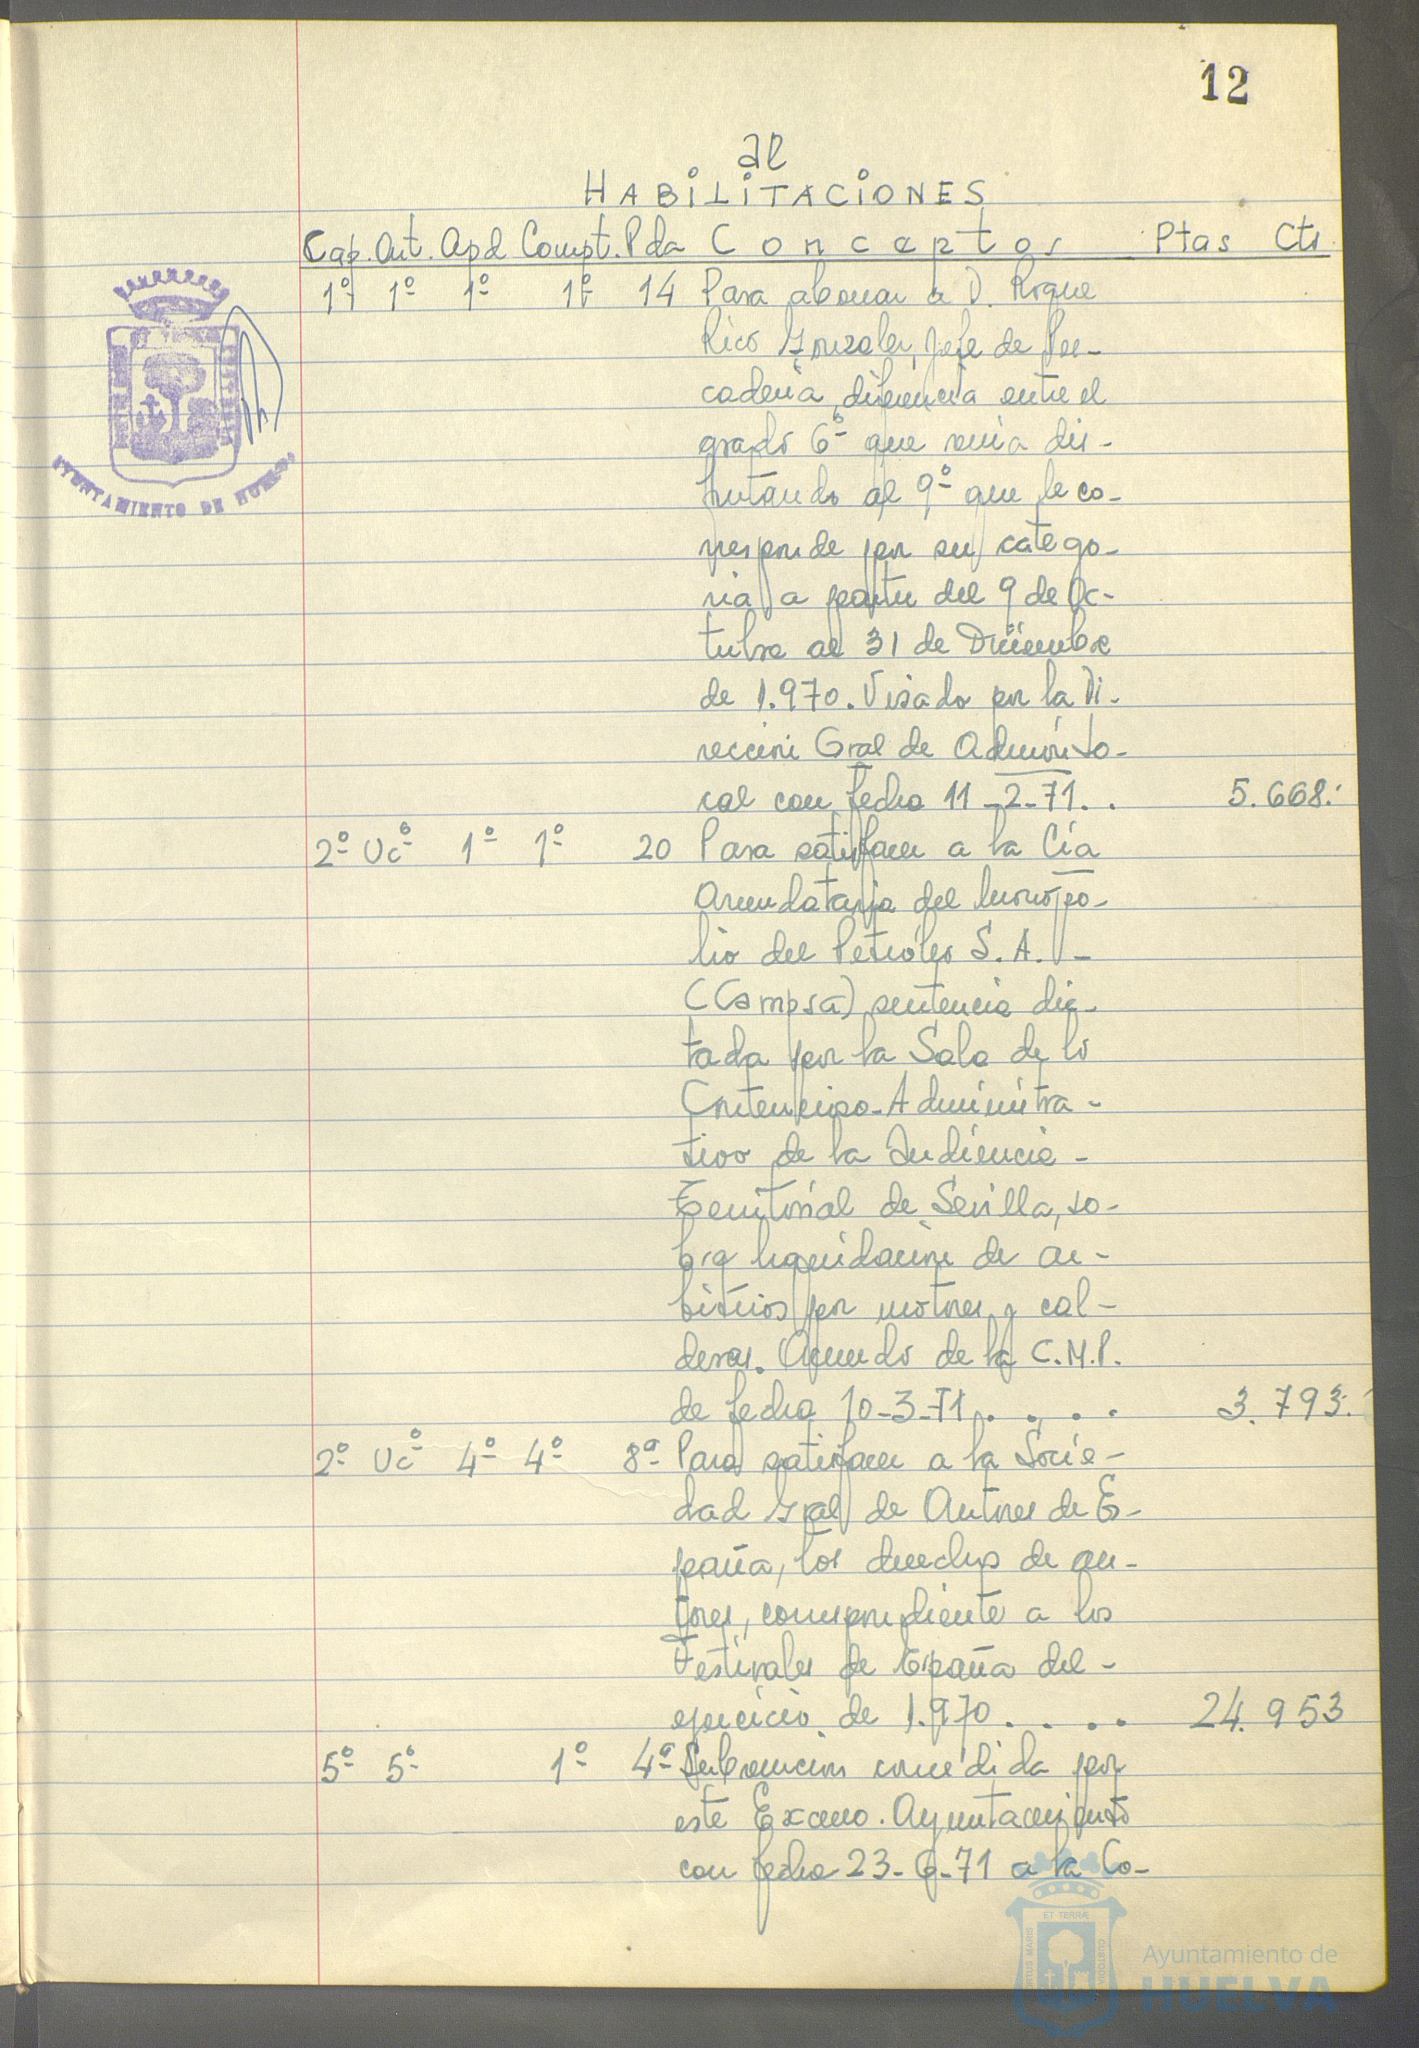 12
al
HABILITACIONES
Cap. Art. Apd Compt. Pda Conceptos Ptas Cts
1º 1º 1º 1º 14 Para abonar a D. Roque
Rico Gonzalez, Jefe de Ne-
diferencia entre el
grado 6º que venia dis-
frutando al 9º que le co-
rresponde por su catego-
ria a partir del 9 de Oc-
tubre al 31 de Diciembre
de 1.970. Visado por la Di-
reccion Gral de Admón Lo-
cal con fecha 11-2-71.. 5.668.
2º Uc 1º 1º 20 Para satisfacer a la Cía
Arrendataria del Monopo-
lio del Petroleo S.A. -
(Campsa) sentencia dic-
tada por la Sala de lo
Contencioso-Administra-
tivo de la Audiencia -
Territorial de Sevilla, so-
bre liquidacion de ar-
bitrios por motores y cal-
deras. Acuerdo de la C.M.P.
de fecha 10-3-71.... 3.793.
2º Uc 4º 4º 8ª Para satisfacer a la Socie-
dad Gral de Autores de Es-
paña, los derechos de au-
tores, correspondiente a los
Festivales de España del -
ejercicio de 1.970.... 24.953
5º 5º 1º 4ª Subvencion concedida por
este Excmo. Ayuntamiento
con fecha 23-6-71 a la Co-
AYUNTAMIENTO DE HUELVA
PORTUS MARIS
ET TERRÆ
CUSTODIA
Ayuntamiento de
HUELVA